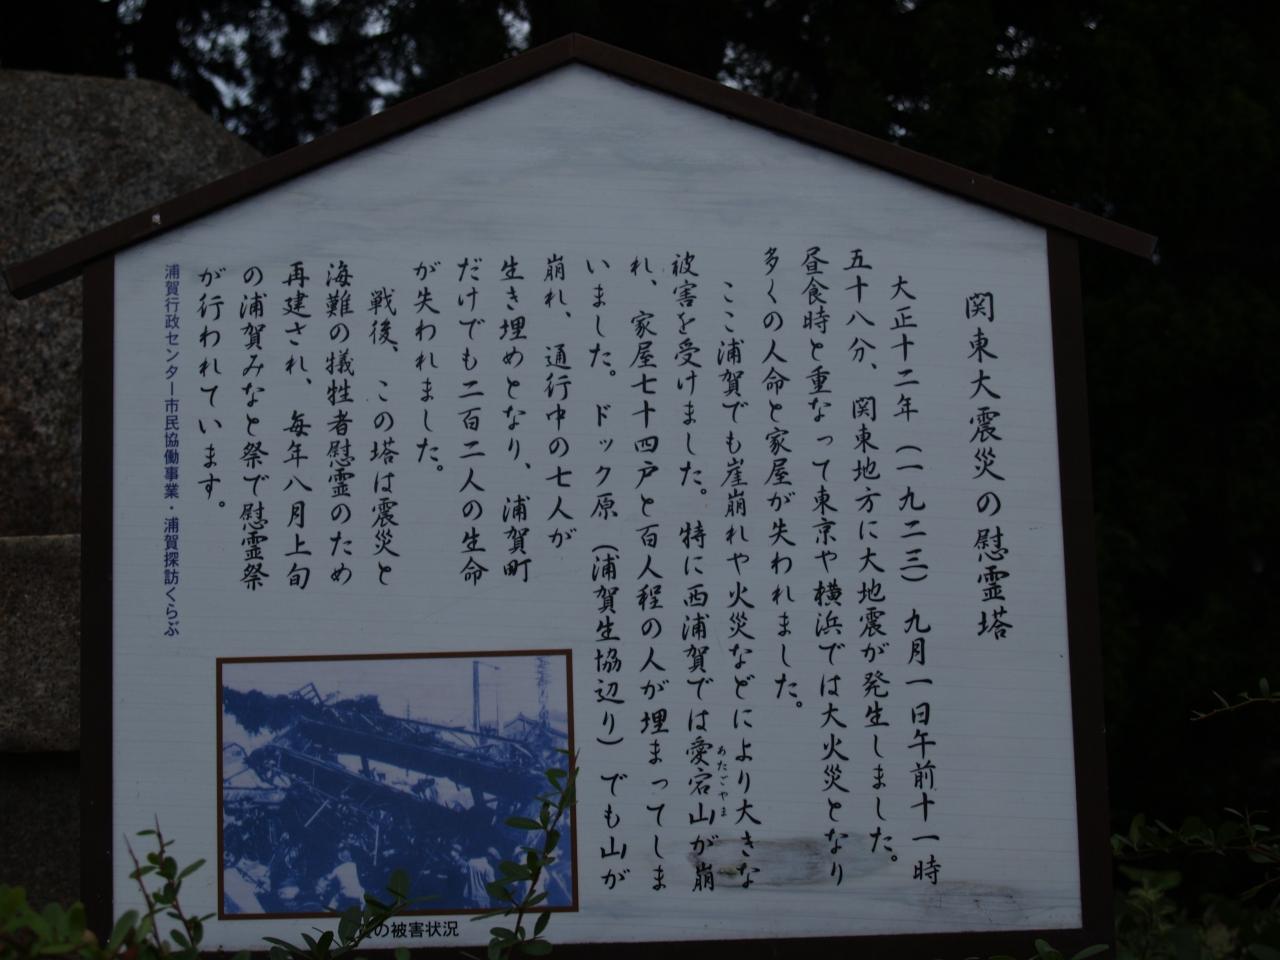 関東大震災の慰霊塔
大正十二年（一九二三）九月一日午前十一時
五十八分、関東地方に大地震が発生しました。
昼食時と重なって東京や横浜では大火災となり
多くの人命と家屋が失われました。
ここ浦賀でも崖崩れや火災などにより大きな
被害を受けました。特に西浦賀では愛宕山が崩
あたごやま
れ、家屋七十四戸と百人程の人が埋まってしま
いました。ドック原（浦賀生協辺り）でも山が
崩れ、通行中の七人が
生き埋めとなり、浦賀町
だけでも二百二人の生命
が失われました。
戦後、この塔は震災と
海難の犠牲者慰霊のため
再建され、毎年八月上旬
の浦賀みなと祭で慰霊祭
が行われています。
浦賀行政センター市民協働事業・浦賀探訪くらぶ
の被害状況